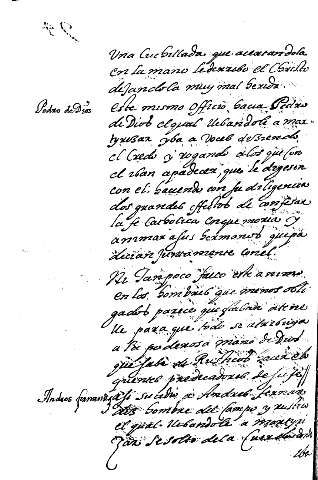 Una Cuchillada que acertandola
en la mano le derribo el Christo
dejandola muy mal herida.
Pedro de Dios
este mismo officio hacia Pedro
de Dios el qual llebandole a mar-
tyrizar yba a voces diziendo
el Credo y rogando a los que con
el iban a padecer, que le dixesen
con el. haciendo con su diligencia
dos grandes efectos de confesar
la fe Catholica en que moria y
animar a sus hermanos que pa-
decian juntamente con el.
Ni tampoco falto este animo
en los hombres que menos obli-
gados parece que estaban a tene-
lle para que todo se atribuya
a la poderosa mano de Dios
que sabe de Rusticos hacer elo-
quentes predicadores
Andres
asi sucedio a Andres
hombre del campo y rustico
el qual llebandole a martyri-
zar se solto de la